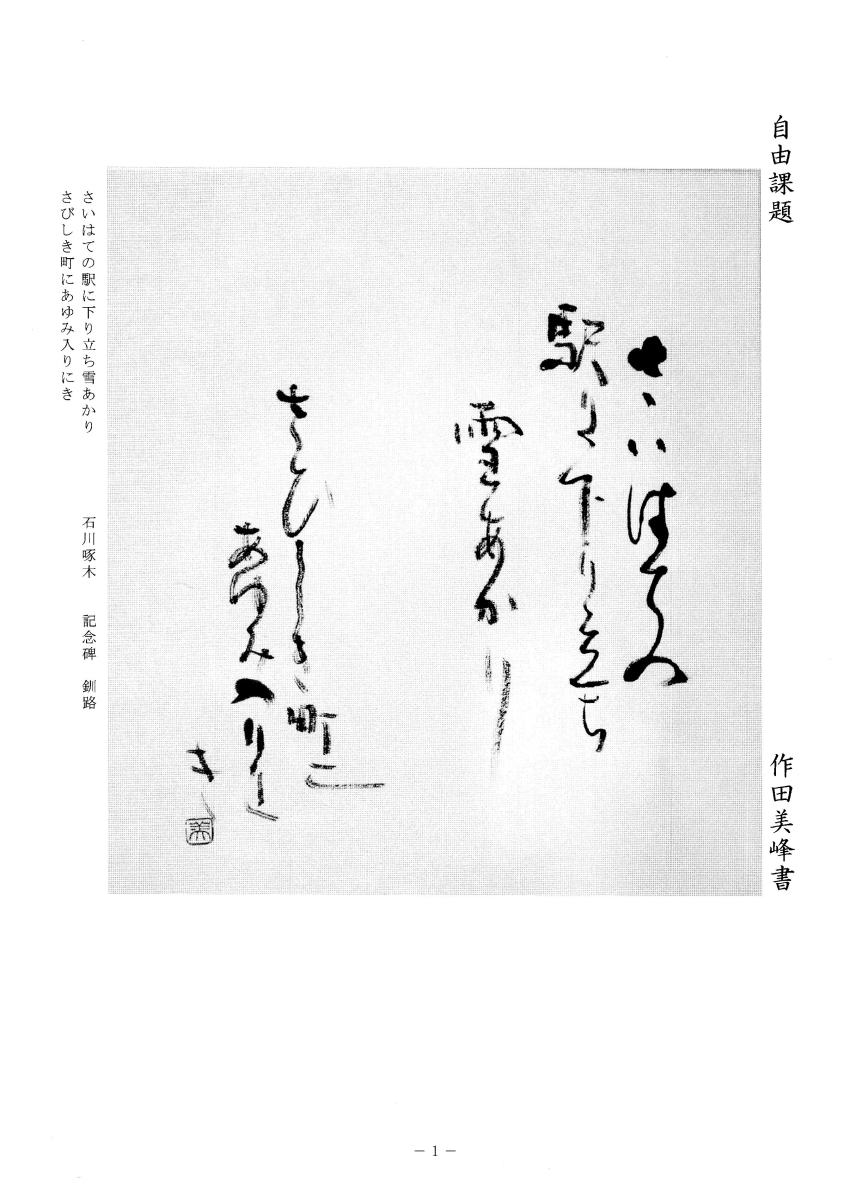 自由課題
作田美峰書
さいはての
駅に下り立ち
雪あかり
さひしき町に
あゆみ入りに
き
美
さいはての駅に下り立ち雪あかり
さびしき町にあゆみ入りにき
石川啄木 記念碑 釧路
− 1 −